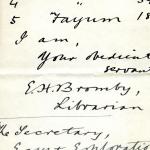 4 " 
5 Fayum 18
I am,
Your obedient
servant
E.H. Bromby,
Librarian
The Secretary,
Egypt Exploration